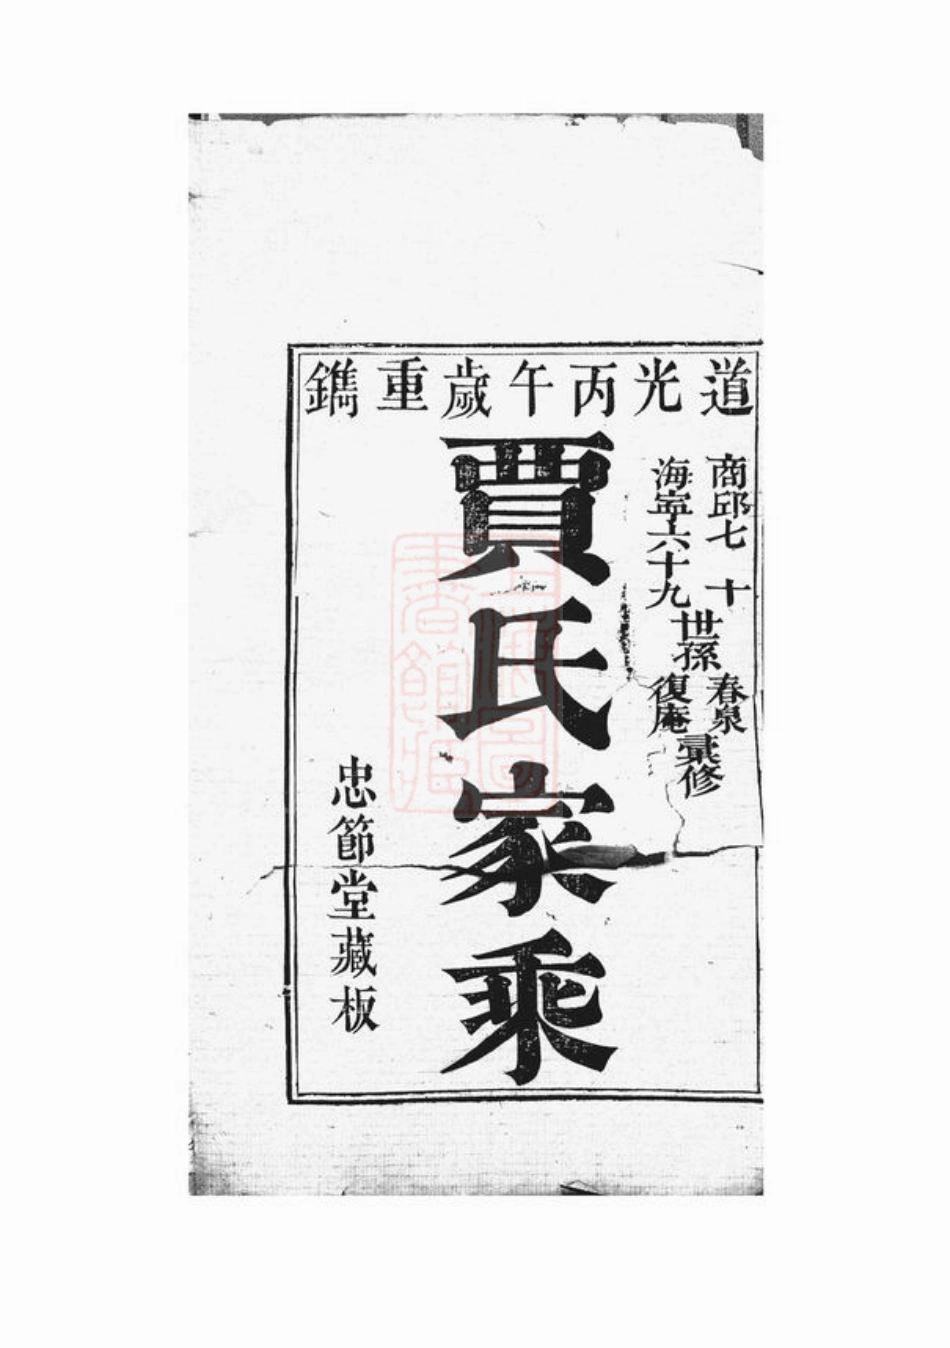 道光丙午歲重鐫
商邱七十
海寧六十九
世孫
春泉
復庵
彙修
賈氏家乘
忠節堂藏板
上海圖書館藏